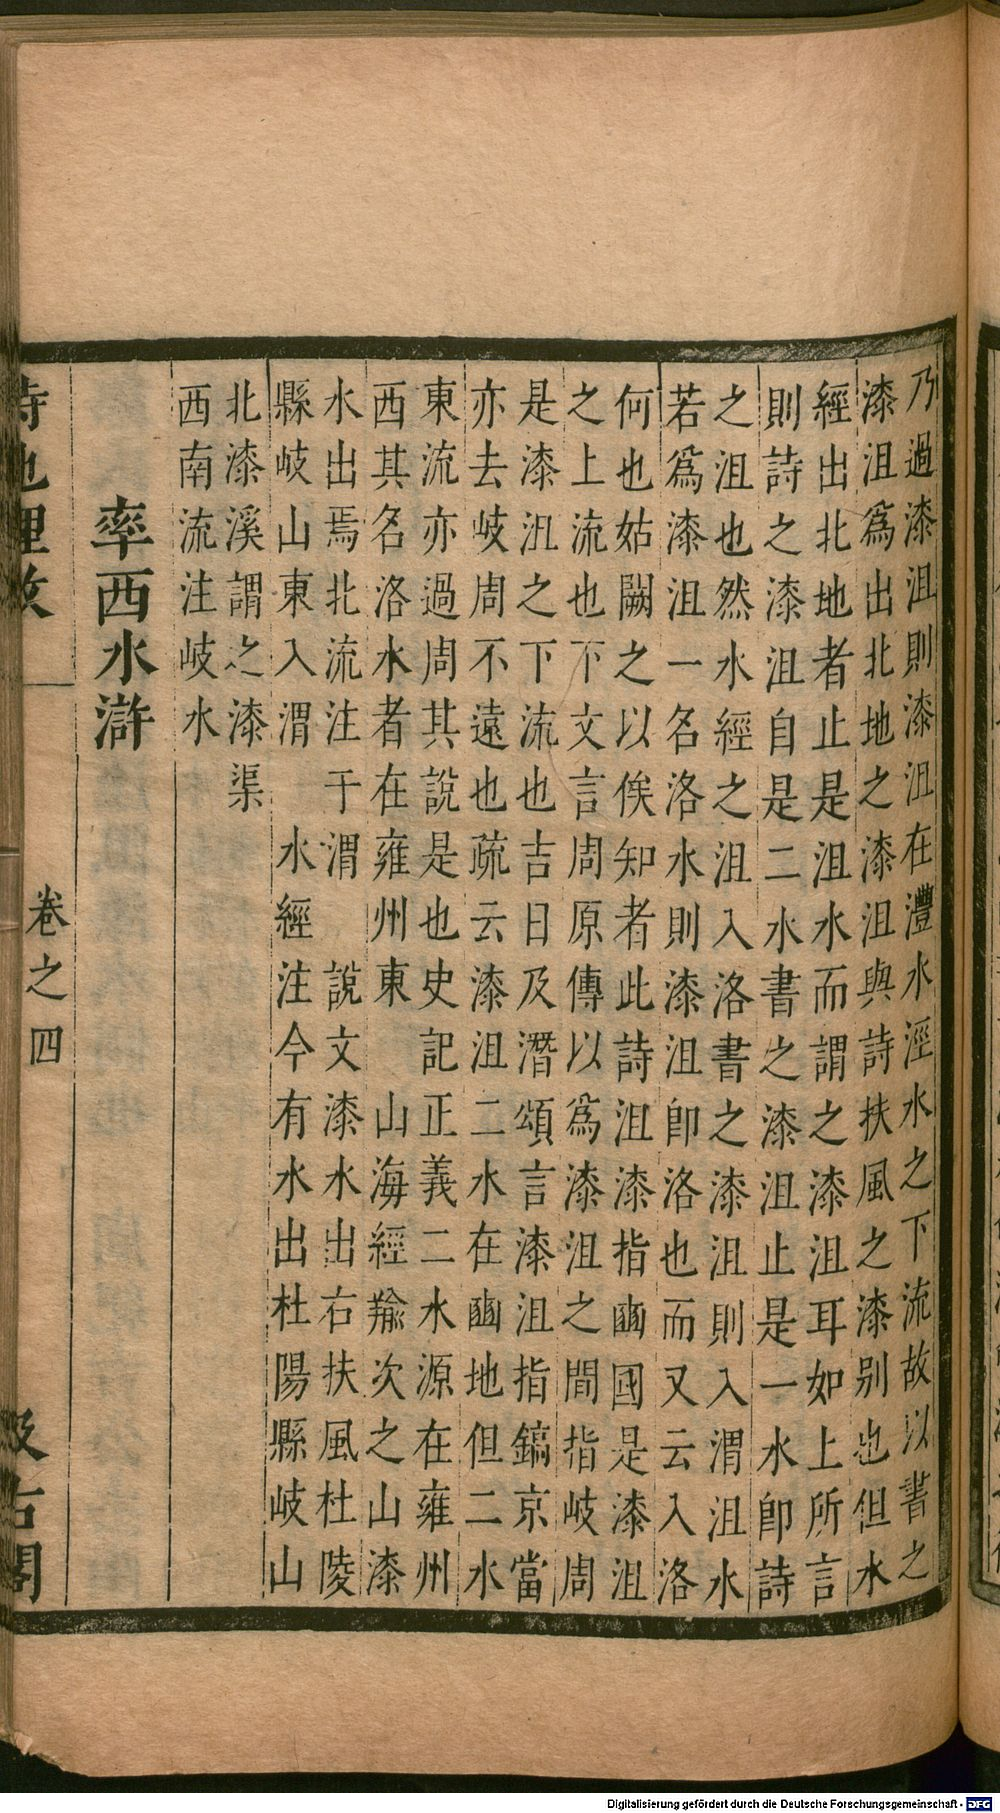 乃過漆沮則漆沮在灃水涇水之下流故以書之
漆沮爲出北地之漆沮與詩扶風之漆别也但水
經出北地者止是沮水而謂之漆沮耳如上所言
則詩之漆沮自是二水書之漆沮止是一水卽詩
之沮也然水經之沮入洛書之漆沮則入渭沮水
若爲漆沮一名洛水則漆沮卽洛也而又云入洛
何也姑闕之以俟知者此詩沮漆指豳國是漆沮
之上流也下文言周原傳以爲漆沮之間指岐周
是漆沮之下流也吉日及潛頌言漆沮指鎬京當
亦去岐周不遠也疏云漆沮二水在豳地但二水
東流亦過周其說是也史記正義二水源在雍州
西其名洛水者在雍州東 山海經羭次之山漆
水出焉北流注于渭 說文漆水出右扶風杜陵
縣岐山東入渭 水經注今有水出杜陽縣岐山
北漆溪謂之漆渠
西南流注岐水
率西水滸
詩地理攷
卷之四
汲古閣
Digitalisierung gefördert durch die Deutsche Forschungsgemeinschaft - DFG